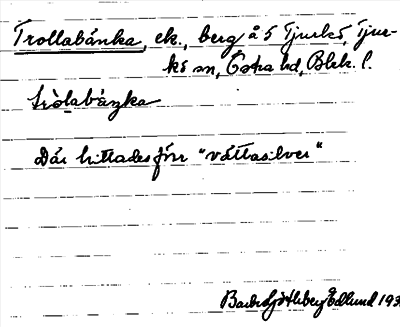 Trollabånka, ek., berg å S Tjurkö, Tjur-
kö sn, Östra hd, Blek. l.
tròlabåŋka
Där hittades förr "våttasilver"
Edlund 193